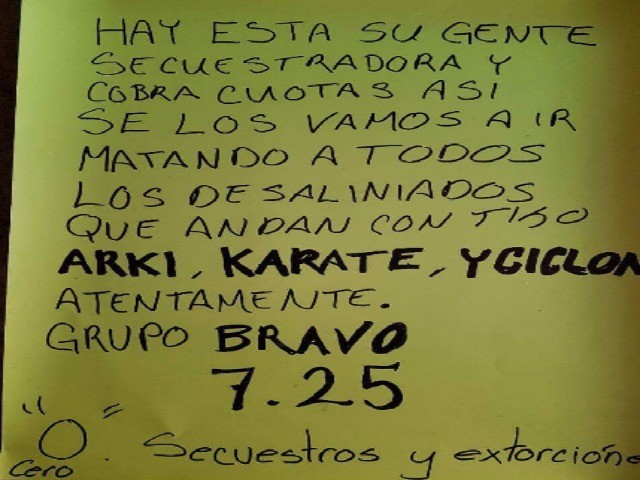 HAY ESTA SU GENTE
SECUESTRADORA Y
COBRA CUOTAS ASI
SE LOS VAMOS A IR
MATANDO A TODOS
LOS DESALINIADOS
QUE ANDAN CON TISO
ARKI, KARATE, Y CICLON
ATENTAMENTE.
GRUPO BRAVO
7.25
"O". Secuestros y extorcione
Cero